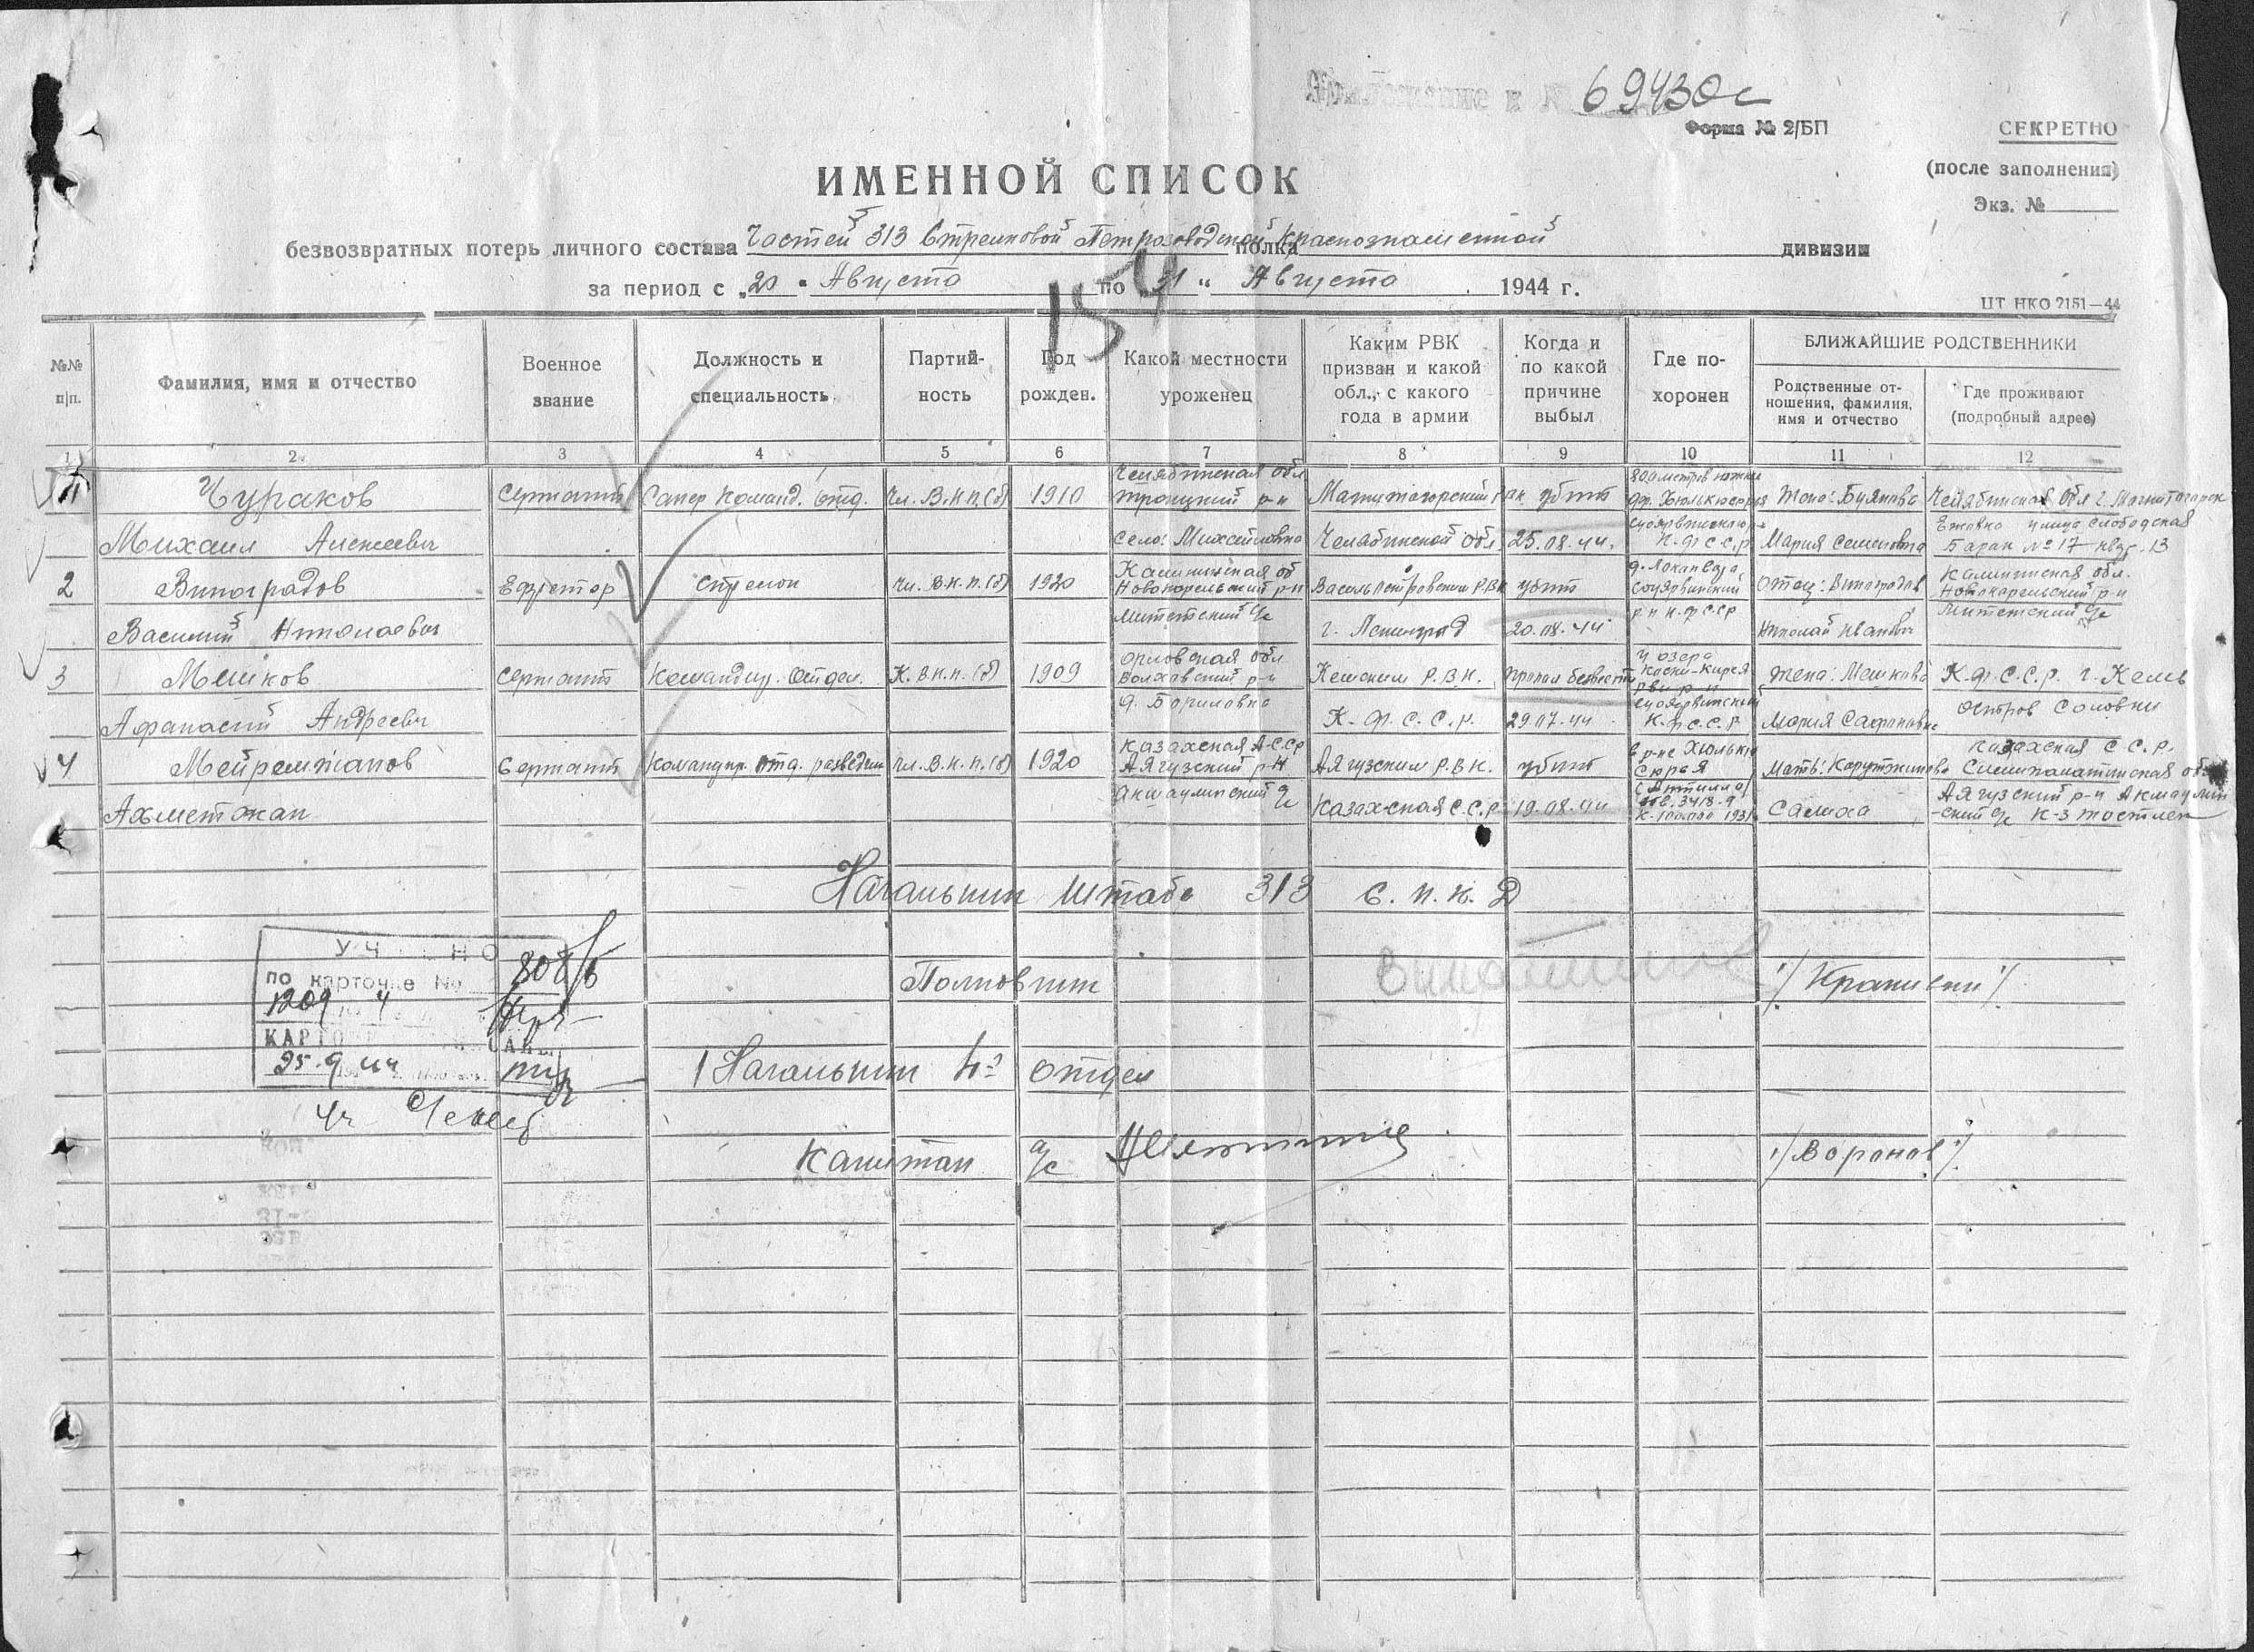 69430с
Форма № 2/БП
СЕКРЕТНО
(после заполнения)
Экз. №
ИМЕННОЙ СПИСОК
безвозвратных потерь личного состава Частей 313 Стрелковой Петрозаводской полка Краснознаменной дивизии
за период с „20 " Августа по 31 " Августа 1944 г.
154
ЦТ НКО 2151—44
№№ п|п.
Фамилия, имя и отчество
Военное звание
Должность и специальность
Партий-
ность
Год рожден.
Какой местности уроженец
Каким РВК
призван и какой
обл., с какого
года в армии
Когда и
по какой
причине
выбыл
Где по-
хоронен
БЛИЖАЙШИЕ РОДСТВЕННИКИ
Родственные от-
ношения, фамилия,
имя и отчество
Где проживают
(подробный адрес)
1 2 3 4 5 6 7 8 9 10 11 12
1 Чураков Михаил Алексеевич
Сержант
Сапер Команд. отд.
Чл. В.К.П.(б)
1910
Челябинская обл
Троицкий р-н
Село: Михайловка
Магнитогорский
Челябинской обл.
убит
25.08.44.
К.Ф С С Р
Жена: Буянова
Мария Семеновна
Челябинская обл г. Магнитогорск
Ежовка улица Слободская
Барак № 17 кв. 13
2 Виноградов Василий Николаевич
Ефрейтор
стрелок
Чл. В.К.П.(б)
1920
Калининская об
Новокарельский р-н
Василеостровским Р.В.К
г. Ленинград
убит
20.08.44
Суоярвинский
р-н К.Ф ССР
Отец: Виноградов
Николай Иванович
Калининская обл.
Новокарельский р-н
3 Мешков Афанасий Андреевич
Сержант
Командир. Отдел.
К. В.К.П. (б)
1909
Орловская обл
Волховский р-н
д. Бориловка
Кемским Р.В.К.
К. Ф. С. С. Р.
пропал безвести
29.07.44
у озера
Суоярвинский
К. Ф С С. Р
Жена: Мешкова
Мария Сафоновна
К. Ф. С. С. Р. г. Кемь
Остров Соловки
4 Мейремжанов Ахметжан
Сержант
Командир. отд. разведки
Чл. В. К. П. (б)
1920
Казахская А.С.С.р
Аягузский р-н
Акшаулинский с/с
Аягузским Р.В.К.
Казахская С С. Р
убит
19.08.44
в р-не Хюлькю
Сюрья
К. 100000 1931
Мать:
Салиха
Казахская С С. Р.
Семипалатинская об
Аягузский р-н Акшаулин
-ский с/с к-з
Начальник Штаба 313 С. П. К. Д
Полковник /Крапивин/
Начальник 4го отдел
Капитан а/с /Воронов/
УЧ НО
по карточке №
КАРТО
25.9 44